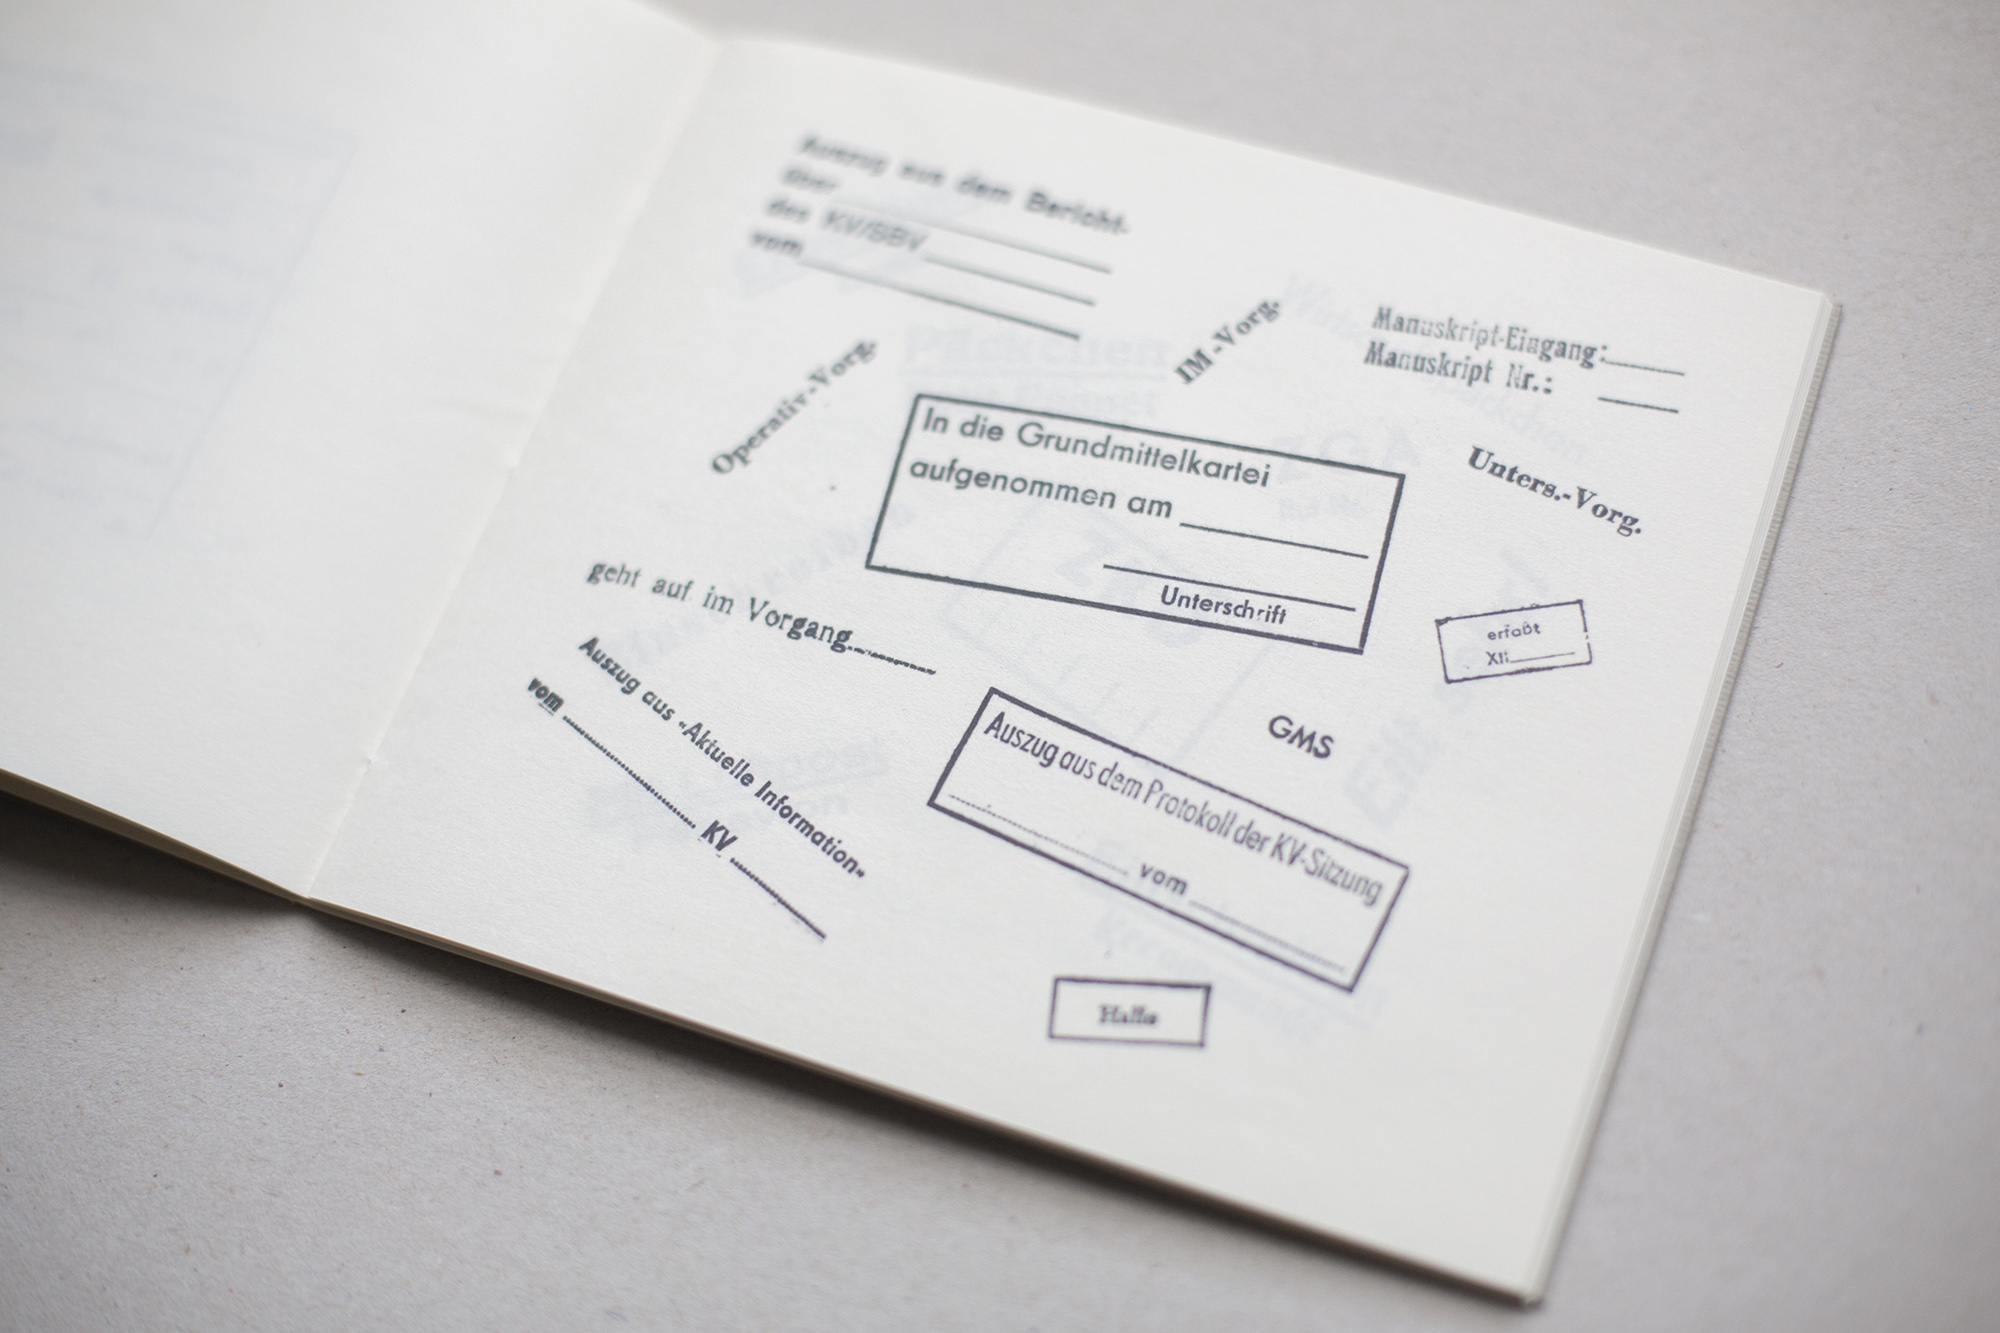 Auszug aus dem Bericht-
über
des KV/SBV
vom
Operativ.-Vorg.
IM-Vorg.
Manuskript-Eingang:
Manuskript Nr.:
In die Grundmittelkartei
aufgenommen am
Unterschrift
Unters.-Vorg.
geht auf im Vorgang
erfaßt
XII
Auszug aus «Aktuelle Information»
vom KV
GMS
Auszug aus dem Protokoll der KV-Sitzung
vom
Halle
Päckchen
ZGA